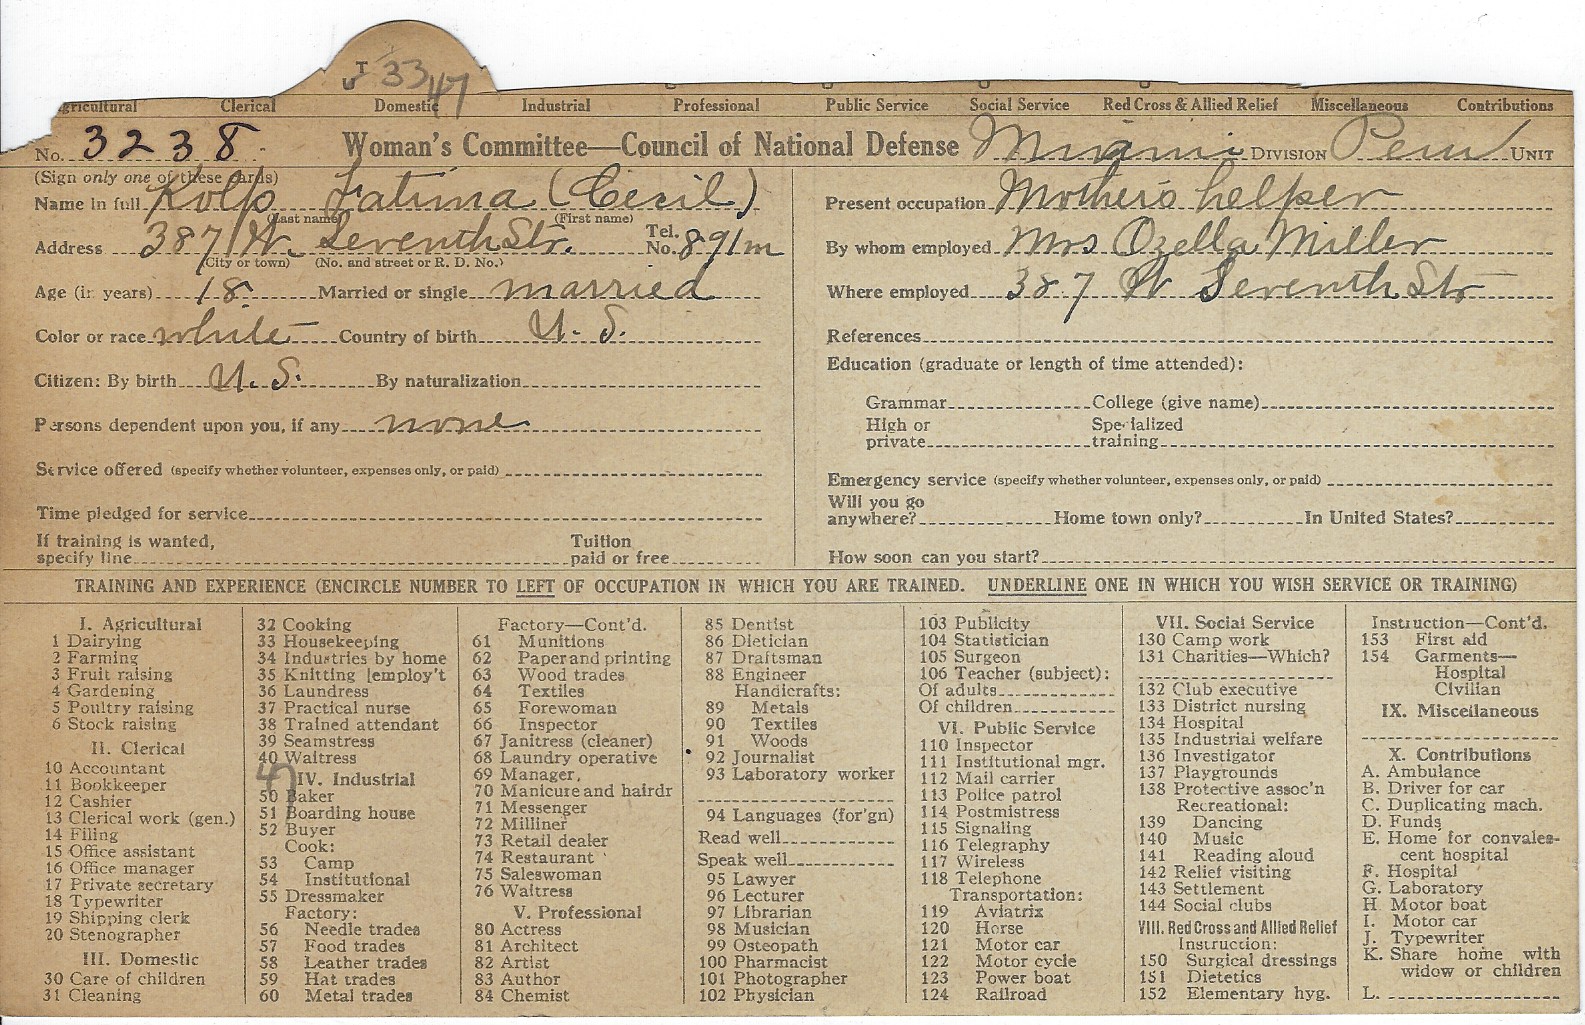 T 33 47
Agricultural Clerical Domestic Industrial Professional Public Service Social Service Red Cross & Allied Relief Miscellaneous Contributions
No. 3238 Woman's Committee—Council of National Defense Miami DIVISION Peru UNIT
(Sign only one of these cards)
Name in full Kolp Fatima (Cecil)
(Last name) (First name)
Address 387 W. Seventh Str. Tel. No. 891m
(City or town) (No. and street or R. D. No.)
Age (in years) 18 Married or single married
Color or race white Country of birth U. S.
Citizen: By birth U. S. By naturalization
Persons dependent upon you, if any none
Service offered (specify whether volunteer, expenses only, or paid)
Time pledged for service
If training is wanted, specify line Tuition paid or free
Present occupation Mother's helper
By whom employed Mrs Ozella Miller
Where employed 387 W Seventh Str
References
Education (graduate or length of time attended):
Grammar College (give name)
High or private Specialized training
Emergency service (specify whether volunteer, expenses only, or paid)
Will you go anywhere? Home town only? In United States?
How soon can you start?
TRAINING AND EXPERIENCE (ENCIRCLE NUMBER TO LEFT OF OCCUPATION IN WHICH YOU ARE TRAINED. UNDERLINE ONE IN WHICH YOU WISH SERVICE OR TRAINING)
I. Agricultural
1 Dairying
2 Farming
3 Fruit raising
4 Gardening
5 Poultry raising
6 Stock raising
II. Clerical
10 Accountant
11 Bookkeeper
12 Cashier
13 Clerical work (gen.)
14 Filing
15 Office assistant
16 Office manager
17 Private secretary
18 Typewriter
19 Shipping clerk
20 Stenographer
III. Domestic
30 Care of children
31 Cleaning
32 Cooking
33 Housekeeping
34 Industries by home
35 Knitting [employ't
36 Laundress
37 Practical nurse
38 Trained attendant
39 Seamstress
40 Waitress
47
IV. Industrial
50 Baker
51 Boarding house
52 Buyer
Cook:
53 Camp
54 Institutional
55 Dressmaker
Factory:
56 Needle trades
57 Food trades
58 Leather trades
59 Hat trades
60 Metal trades
Factory—Cont'd.
61 Munitions
62 Paper and printing
63 Wood trades
64 Textiles
65 Forewoman
66 Inspector
67 Janitress (cleaner)
68 Laundry operative
69 Manager,
70 Manicure and hairdr
71 Messenger
72 Milliner
73 Retail dealer
74 Restaurant
75 Saleswoman
76 Waitress
V. Professional
80 Actress
81 Architect
82 Artist
83 Author
84 Chemist
85 Dentist
86 Dietician
87 Draftsman
88 Engineer
Handicrafts:
89 Metals
90 Textiles
91 Woods
92 Journalist
93 Laboratory worker
94 Languages (for'gn)
Read well
Speak well
95 Lawyer
96 Lecturer
97 Librarian
98 Musician
99 Osteopath
100 Pharmacist
101 Photographer
102 Physician
103 Publicity
104 Statistician
105 Surgeon
106 Teacher (subject):
Of adults
Of children
VI. Public Service
110 Inspector
111 Institutional mgr.
112 Mail carrier
113 Police patrol
114 Postmistress
115 Signaling
116 Telegraphy
117 Wireless
118 Telephone
Transportation:
119 Aviatrix
120 Horse
121 Motor car
122 Motor cycle
123 Power boat
124 Railroad
VII. Social Service
130 Camp work
131 Charities—Which?
132 Club executive
133 District nursing
134 Hospital
135 Industrial welfare
136 Investigator
137 Playgrounds
138 Protective assoc'n
Recreational:
139 Dancing
140 Music
141 Reading aloud
142 Relief visiting
143 Settlement
144 Social clubs
VIII. Red Cross and Allied Relief
Instruction:
150 Surgical dressings
151 Dietetics
152 Elementary hyg.
Instruction—Cont'd.
153 First aid
154 Garments—
Hospital
Civilian
IX. Miscellaneous
X. Contributions
A. Ambulance
B. Driver for car
C. Duplicating mach.
D. Funds
E. Home for convales-
cent hospital
F. Hospital
G. Laboratory
H. Motor boat
I. Motor car
J. Typewriter
K. Share home with
widow or children
L.